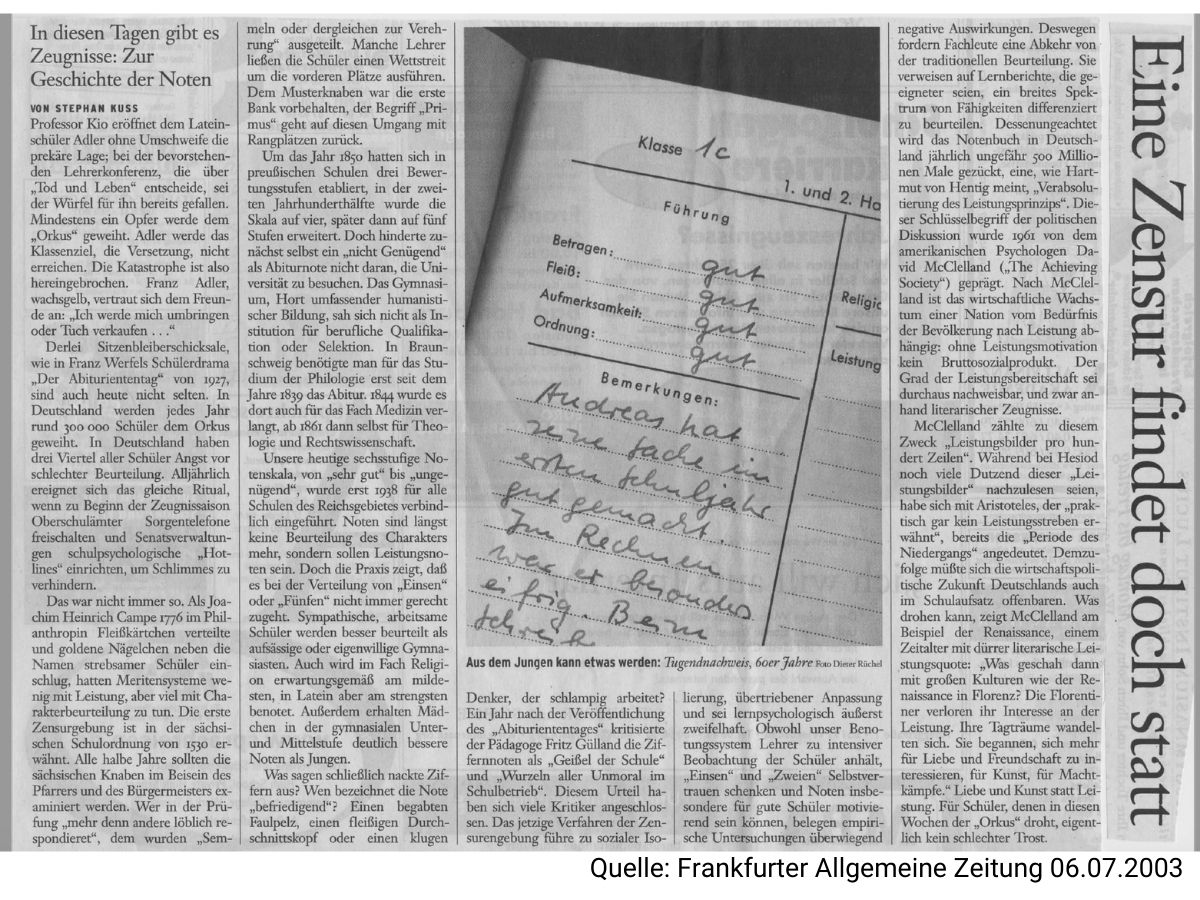 In diesen Tagen gibt es
Zeugnisse: Zur
Geschichte der Noten
VON STEPHAN KUSS
Professor Kio eröffnet dem Latein-
schüler Adler ohne Umschweife die
prekäre Lage; bei der bevorstehen-
den Lehrerkonferenz, die über
„Tod und Leben“ entscheide, sei
der Würfel für ihn bereits gefallen.
Mindestens ein Opfer werde dem
„Orkus“ geweiht. Adler werde das
Klassenziel, die Versetzung, nicht
erreichen. Die Katastrophe ist also
hereingebrochen. Franz Adler,
wachsgelb, vertraut sich dem Freun-
de an: „Ich werde mich umbringen
oder Tuch verkaufen . . .“
Derlei Sitzenbleiberschicksale,
wie in Franz Werfels Schülerdrama
„Der Abituriententag“ von 1927,
sind auch heute nicht selten. In
Deutschland werden jedes Jahr
rund 300 000 Schüler dem Orkus
geweiht. In Deutschland haben
drei Viertel aller Schüler Angst vor
schlechter Beurteilung. Alljährlich
ereignet sich das gleiche Ritual,
wenn zu Beginn der Zeugnissaison
Oberschulämter Sorgentelefone
freischalten und Senatsverwaltun-
gen schulpsychologische „Hot-
lines“ einrichten, um Schlimmes zu
verhindern.
Das war nicht immer so. Als Joa-
chim Heinrich Campe 1776 im Phil-
anthropin Fleißkärtchen verteilte
und goldene Nägelchen neben die
Namen strebsamer Schüler ein-
schlug, hatten Meritensysteme we-
nig mit Leistung, aber viel mit Cha-
rakterbeurteilung zu tun. Die erste
Zensurgebung ist in der sächsi-
schen Schulordnung von 1530 er-
wähnt. Alle halbe Jahre sollten die
sächsischen Knaben im Beisein des
Pfarrers und des Bürgermeisters ex-
aminiert werden. Wer in der Prü-
fung „mehr denn andere löblich re-
spondieret“, dem wurden „Sem-
meln oder dergleichen zur Vereh-
rung“ ausgeteilt. Manche Lehrer
ließen die Schüler einen Wettstreit
um die vorderen Plätze ausführen.
Dem Musterknaben war die erste
Bank vorbehalten, der Begriff „Pri-
mus“ geht auf diesen Umgang mit
Rangplätzen zurück.
Um das Jahr 1850 hatten sich in
preußischen Schulen drei Bewer-
tungsstufen etabliert, in der zwei-
ten Jahrhunderthälfte wurde die
Skala auf vier, später dann auf fünf
Stufen erweitert. Doch hinderte zu-
nächst selbst ein „nicht Genügend“
als Abiturnote nicht daran, die Uni-
versität zu besuchen. Das Gymnasi-
um, Hort umfassender humanisti-
scher Bildung, sah sich nicht als In-
stitution für berufliche Qualifika-
tion oder Selektion. In Braun-
schweig benötigte man für das Stu-
dium der Philologie erst seit dem
Jahre 1839 das Abitur. 1844 wurde es
dort auch für das Fach Medizin ver-
langt, ab 1861 dann selbst für Theo-
logie und Rechtswissenschaft.
Unsere heutige sechsstufige No-
tenskala, von „sehr gut“ bis „unge-
nügend“, wurde erst 1938 für alle
Schulen des Reichsgebietes verbind-
lich eingeführt. Noten sind längst
keine Beurteilung des Charakters
mehr, sondern sollen Leistungsno-
ten sein. Doch die Praxis zeigt, daß
es bei der Verteilung von „Einsen“
oder „Fünfen“ nicht immer gerecht
zugeht. Sympathische, arbeitsame
Schüler werden besser beurteilt als
aufsässige oder eigenwillige Gymna-
siasten. Auch wird im Fach Religi-
on erwartungsgemäß am milde-
sten, in Latein aber am strengsten
benotet. Außerdem erhalten Mäd-
chen in der gymnasialen Unter-
und Mittelstufe deutlich bessere
Noten als Jungen.
Was sagen schließlich nackte Zif-
fern aus? Wen bezeichnet die Note
„befriedigend“? Einen begabten
Faulpelz, einen fleißigen Durch-
schnittskopf oder einen klugen
Klasse 1c
1. und 2. Ha
Führung
Betragen: gut
Fleiß: gut
Aufmerksamkeit: gut
Ordnung: gut
Religio
Leistung
Bemerkungen:
Andreas hat
seine Sache im
ersten Schuljahr
gut gemacht.
Im Rechnen
war er besonders
eifrig. Beim
Schreib
Aus dem Jungen kann etwas werden: Tugendnachweis, 60er Jahre Foto Dieter Rüchel
Denker, der schlampig arbeitet?
Ein Jahr nach der Veröffentlichung
des „Abituriententages“ kritisierte
der Pädagoge Fritz Gülland die Zif-
fernnoten als „Geißel der Schule“
und „Wurzeln aller Unmoral im
Schulbetrieb“. Diesem Urteil ha-
ben sich viele Kritiker angeschlos-
sen. Das jetzige Verfahren der Zen-
surengebung führe zu sozialer Iso-
lierung, übertriebener Anpassung
und sei lernpsychologisch äußerst
zweifelhaft. Obwohl unser Beno-
tungssystem Lehrer zu intensiver
Beobachtung der Schüler anhält,
„Einsen“ und „Zweien“ Selbstver-
trauen schenken und Noten insbe-
sondere für gute Schüler motivie-
rend sein können, belegen empiri-
sche Untersuchungen überwiegend
negative Auswirkungen. Deswegen
fordern Fachleute eine Abkehr von
der traditionellen Beurteilung. Sie
verweisen auf Lernberichte, die ge-
eigneter seien, ein breites Spek-
trum von Fähigkeiten differenziert
zu beurteilen. Dessenungeachtet
wird das Notenbuch in Deutsch-
land jährlich ungefähr 500 Millio-
nen Male gezückt, eine, wie Hart-
mut von Hentig meint, „Verabsolu-
tierung des Leistungsprinzips“. Die-
ser Schlüsselbegriff der politischen
Diskussion wurde 1961 von dem
amerikanischen Psychologen Da-
vid McClelland („The Achieving
Society“) geprägt. Nach McClel-
land ist das wirtschaftliche Wachs-
tum einer Nation vom Bedürfnis
der Bevölkerung nach Leistung ab-
hängig: ohne Leistungsmotivation
kein Bruttosozialprodukt. Der
Grad der Leistungsbereitschaft sei
durchaus nachweisbar, und zwar an-
hand literarischer Zeugnisse.
McClelland zählte zu diesem
Zweck „Leistungsbilder pro hun-
dert Zeilen“. Während bei Hesiod
noch viele Dutzend dieser „Lei-
stungsbilder“ nachzulesen seien,
habe sich mit Aristoteles, der „prak-
tisch gar kein Leistungsstreben er-
wähnt“, bereits die „Periode des
Niedergangs“ angedeutet. Demzu-
folge müßte sich die wirtschaftspoli-
tische Zukunft Deutschlands auch
im Schulaufsatz offenbaren. Was
drohen kann, zeigt McClelland am
Beispiel der Renaissance, einem
Zeitalter mit dürrer literarische Lei-
stungsquote: „Was geschah dann
mit großen Kulturen wie der Re-
naissance in Florenz? Die Florenti-
ner verloren ihr Interesse an der
Leistung. Ihre Tagträume wandel-
ten sich. Sie begannen, sich mehr
für Liebe und Freundschaft zu in-
teressieren, für Kunst, für Macht-
kämpfe.“ Liebe und Kunst statt Lei-
stung. Für Schüler, denen in diesen
Wochen der „Orkus“ droht, eigent-
lich kein schlechter Trost.
Eine Zensur findet doch statt
Quelle: Frankfurter Allgemeine Zeitung 06.07.2003